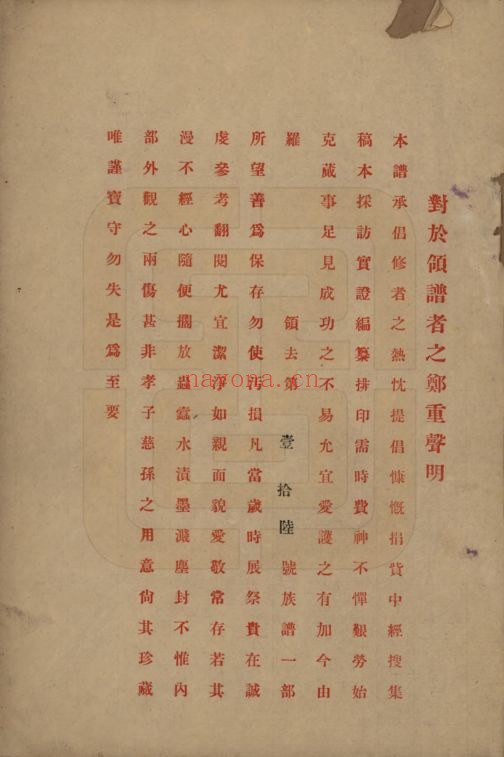 對於領譜者之鄭重聲明
本譜承倡修者之熱忱提倡慷慨捐貲中經搜集
稿本採訪實證編纂排印需時費神不憚艱勞始
克蕆事足見成功之不易允宜愛護之有加今由
羅 領去第 壹拾陸 號族譜一部
所望善為保存勿使污損凡當歲時展祭貴在誠
虔參考翻閱尤宜潔淨如親面貌愛敬常存若其
漫不經心隨便擱放蟲蠹水漬墨濺塵封不惟內
部外觀之兩傷甚非孝子慈孫之用意尙其珍藏
唯謹寶守勿失是為至要
nayona.cn